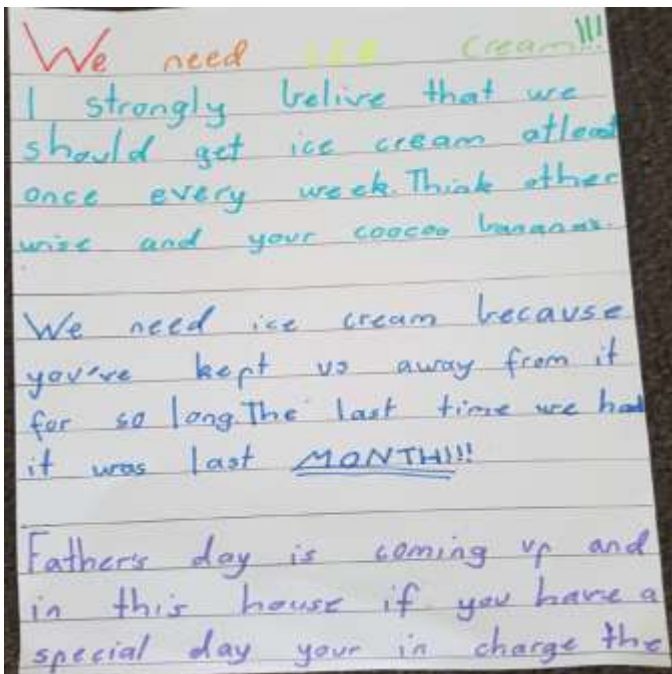 We need ice cream!!!
I strongly belive that we
should get ice cream atleast
once every week. Think other
wise and your coocoo bananas.
We need ice cream because
you've kept us away from it
for so long. The last time we had
it was last MONTH!!!
Father's day is coming up and
in this house if you have a
special day your in charge the